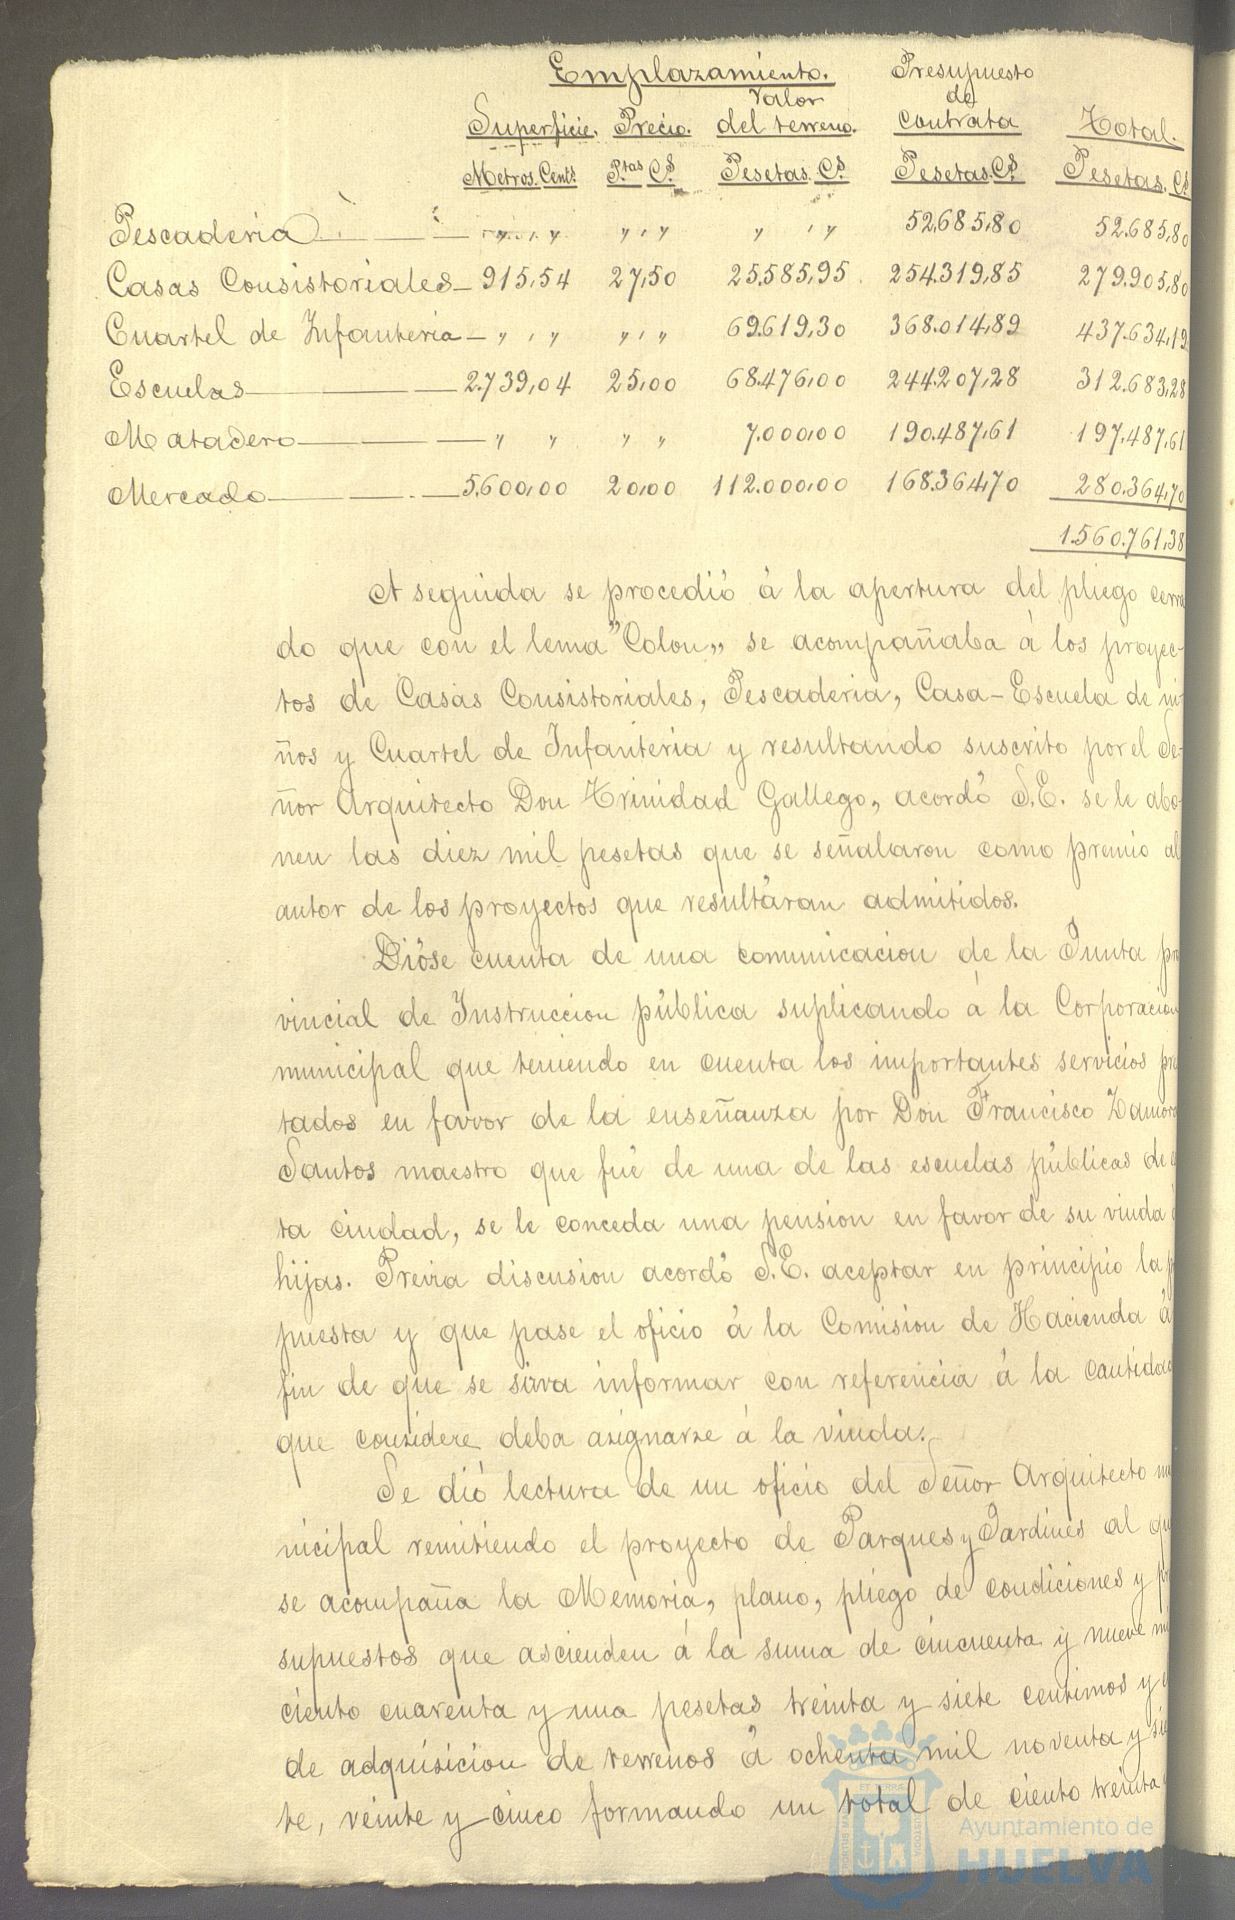 Emplazamiento. Presupuesto
Valor de
Superficie. Precio. del terreno. Contrata Total.
Metros. Cents. P.tas C.s Pesetas. C.s Pesetas. C.s Pesetas. C.s
Pescaderia „ , „ „ , „ „ , „ 52.685,80 52.685,80
Casas Consistoriales 915,54 27,50 25.585,95 254.319,85 279.905,80
Cuartel de Infanteria „ , „ „ , „ 69.619,30 368.014,89 437.634,19
Escuelas 2.739,04 25,00 68.476,00 244.207,28 312.683,28
Matadero „ „ „ „ 7.000,00 190.487,61 197.487,61
Mercado 5.600,00 20,00 112.000,00 168.364,70 280.364,70
1.560.761,38
A seguida se procedió á la apertura del pliego cerra
do que con el lema "Colon„ se acompañaba á los proyec-
tos de Casas Consistoriales, Pescaderia, Casa-Escuela de ni
ños y Cuartel de Infanteria y resultando suscrito por el Se-
ñor Arquitecto Don Trinidad Gallego, acordó S.E. se le abo-
nen las diez mil pesetas que se señalaron como premio al
autor de los proyectos que resultáran admitidos.
Dióse cuenta de una comunicacion de la Junta pro
vincial de Instruccion pública suplicando á la Corporacion
municipal que teniendo en cuenta los importantes servicios pres
tados en favor de la enseñanza por Don Francisco Zamora
Santos maestro que fué de una de las escuelas públicas de es
ta ciudad, se le conceda una pension en favor de su viuda é
hijas. Prévia discusion acordó S.E. aceptar en principio la p
puesta y que pase el oficio á la Comision de Hacienda á
fin de que se sirva informar con referencia á la cantidad
que considere deba asignarse á la viuda.
Se dió lectura de un oficio del Señor Arquitecto mu
nicipal remitiendo el proyecto de Parques y Jardines al que
se acompaña la Memoria, plano, pliego de condiciones y pr
supuestos que ascienden á la suma de cincuenta y nueve mi
ciento cuarenta y una pesetas treinta y siete centimos y e
de adquisicion de terrenos á ochenta mil noventa y sie
te, veinte y cinco formando un total de ciento treinta
Ayuntamiento de
HUELVA